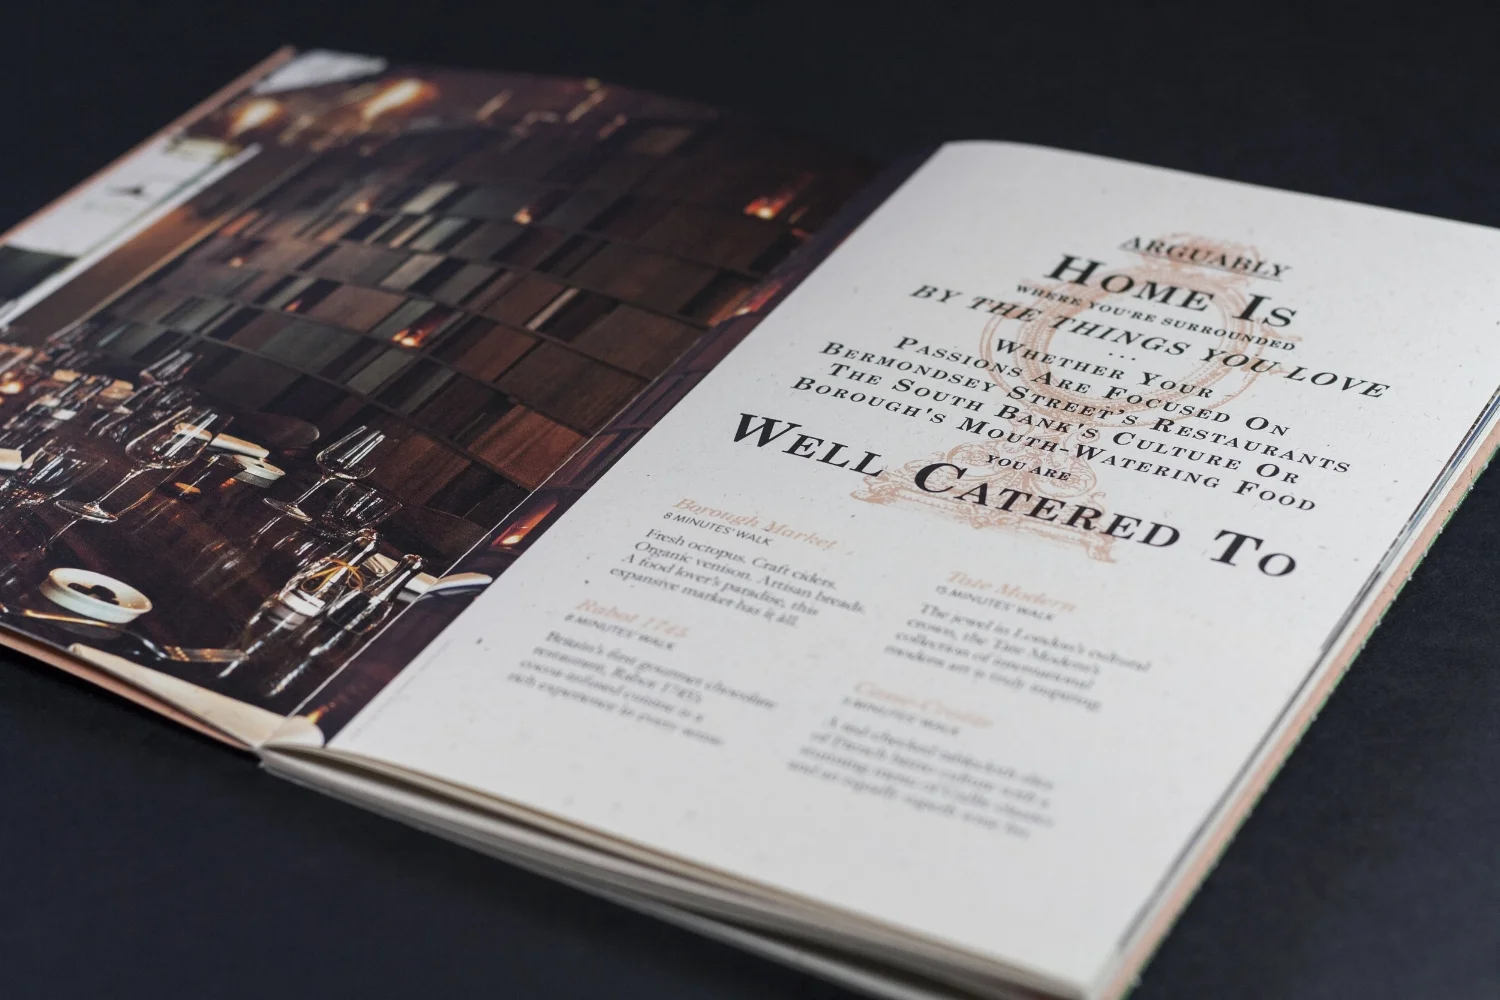 ARGUABLY
HOME IS
WHERE YOU'RE SURROUNDED
BY THE THINGS YOU LOVE
...
WHETHER YOUR
PASSIONS ARE FOCUSED ON
BERMONDSEY STREET'S RESTAURANTS
THE SOUTH BANK'S CULTURE OR
BOROUGH'S MOUTH-WATERING FOOD
YOU ARE
WELL CATERED TO
Borough Market
8 MINUTES' WALK
Fresh octopus. Craft ciders.
Organic venison. Artisan breads.
A food lover's paradise, this
expansive market has it all.
Rabot 1745
8 MINUTES' WALK
Britain's first gourmet chocolate
restaurant, Rabot 1745's
cocoa-infused cuisine is a
rich experience in every sense.
Tate Modern
15 MINUTES' WALK
The jewel in London's cultural
crown, the Tate Modern's
collection of international
modern art is truly inspiring.
MINUTES' WALK